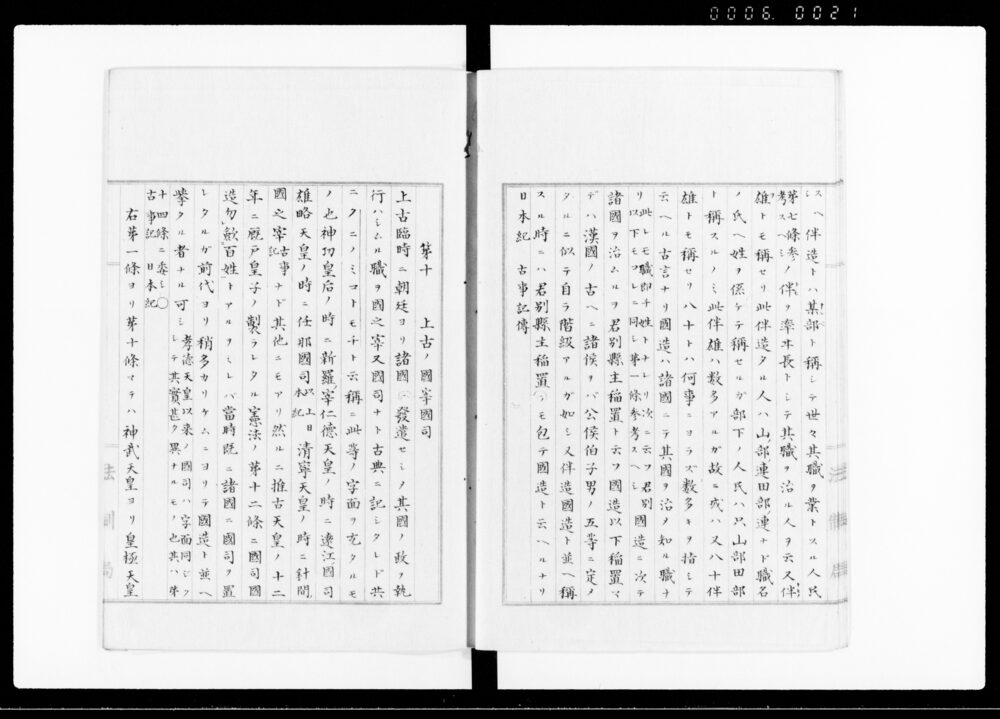 0006. 0021
スヘ伴造トハ某部ト稱シテ世々其職ヲ業トスル人民
第七條參考スヘシノ伴ヲ率ヰ長トシテ其職ヲ治ル人ヲ云又伴
雄トモ稱セリ此伴造タル人ハ山部連田部連ナド職名
ノ氏ヘ姓ヲ係ケテ稱セルガ部下ノ人民ハ只山部田部
ト稱スルノミ此伴雄ハ数多アルガ故ニ或ハ又八十伴
雄トモ稱セリ八十トハ何事ニヨラズ数多キヲ指シテ
云ヘル古言ナリ國造ハ諸國ニテ其國ヲ治メ知ル職ナ
リ此レモ職即チ姓トナレリ次ニ云フ君別國造ニ次テ
以下モコレニ同シ第一條參考スヘシ
諸國ヲ治ムルヲ君別縣主稲置ト云フ國造以下稲置マ
デハ漢國ノ古ヘニ諸侯ヲバ公侯伯子男ノ五等ニ定メ
タルニ似テ自ラ階級アルガ如シ又伴造國造ト並ヘ稱
スル時ニハ君別縣主稲置ヲモ包テ國造ト云ヘルナリ
日本紀 古事記傳
第十 上古ノ國宰國司
上古臨時ニ朝廷ヨリ諸國ニ發遣セシメ其國ノ政ヲ執
行ハシムル職ヲ國之宰又國司ナト古典ニ記シタレド共
ニクニノミコトモチト云稱ニ此等ノ字面ヲ充タルモ
ノ也神功皇后ノ時ニ新羅宰仁德天皇ノ時ニ遠江國司
雄略天皇ノ時ニ任那國司以上日本紀清寧天皇ノ時ニ針間
國之宰古事記ナド其他ニモアリ然ルニ推古天皇ノ十二
年ニ廐戸皇子ノ製ラレタル憲法ノ第十二條ニ國司國
造勿歛百姓トアルヲミレバ當時既ニ諸國ニ國司ヲ置
レタルガ前代ヨリ稍多カリケムニヨリテ國造ト並ヘ
擧タル者ナル可シ孝德天皇以来ノ國司ハ字面同シクシテ其實甚タ異ナルモノ也其ハ第
十四條ニ委シ〇
古事記 日本紀
右第一條ヨリ第十條マテハ神武天皇ヨリ皇極天皇